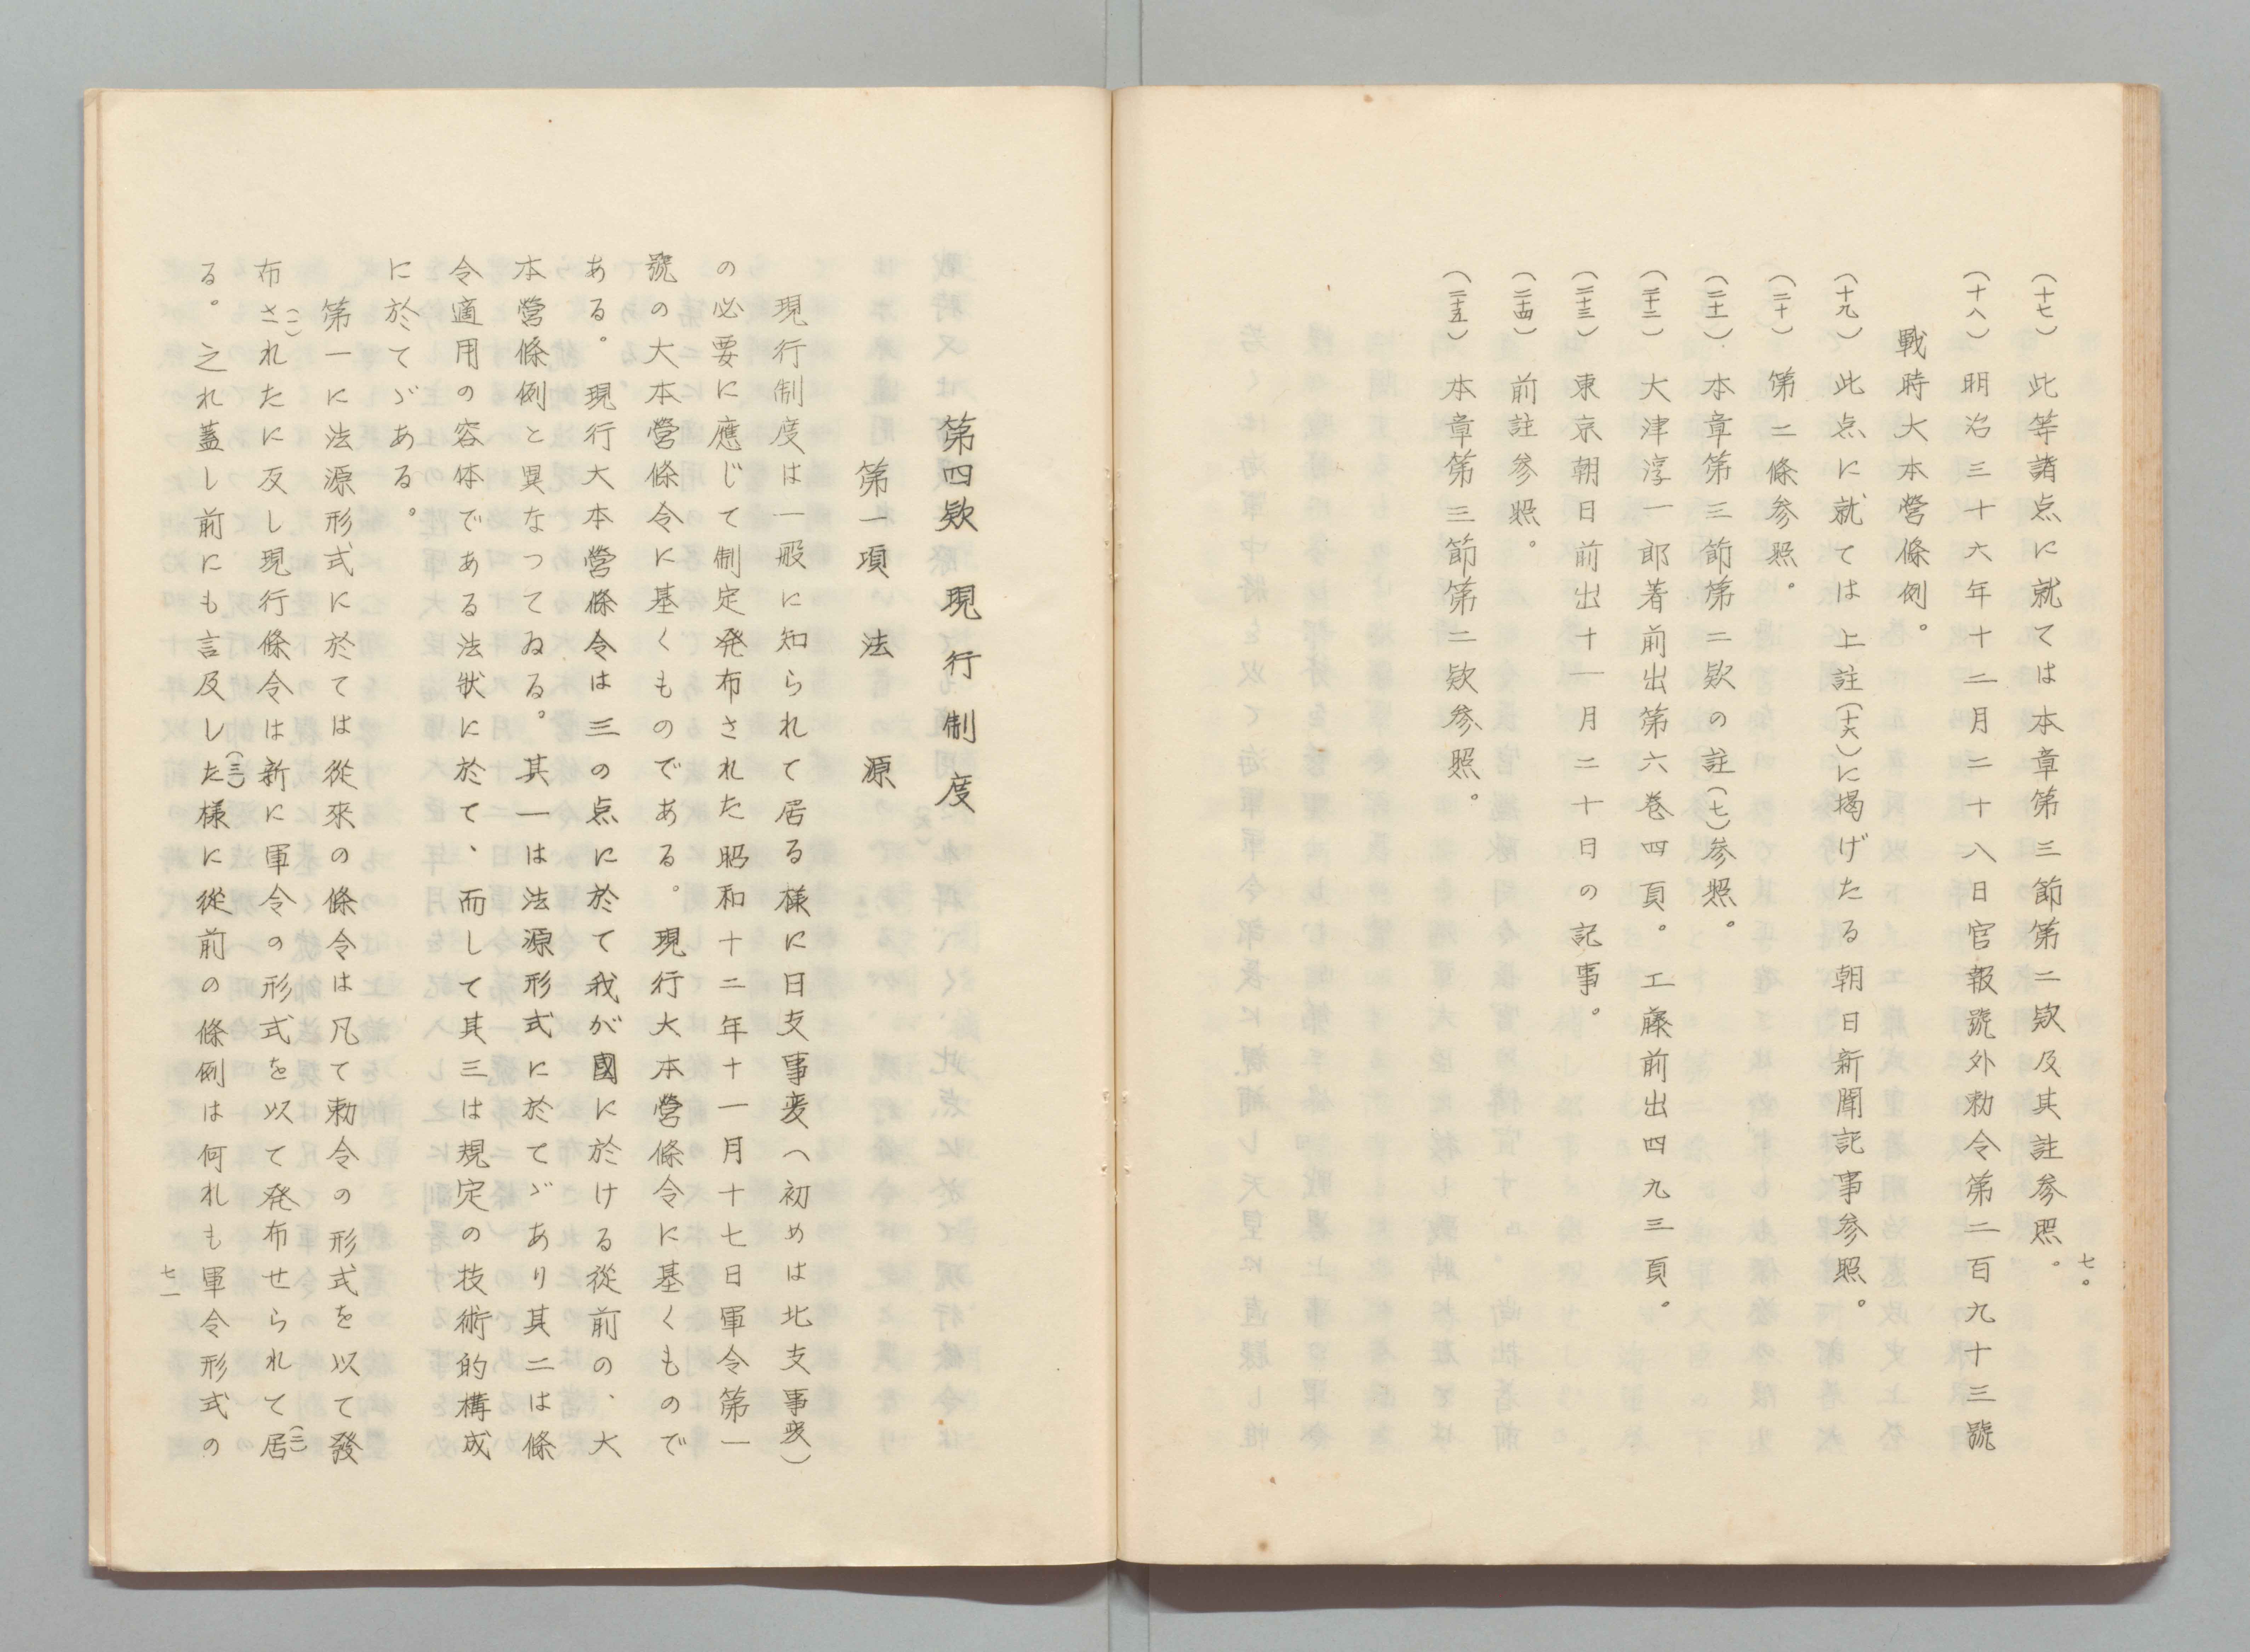 七〇
(十七) 此等諸点に就ては本章第三節第二欵及其註参照。
(十八) 明治三十六年十二月二十八日官報號外勅令第二百九十三號
戰時大本營條例。
(十九) 此点に就ては上註(十六)に掲げたる朝日新聞記事参照。
(二十) 第二條参照。
(二十一) 本章第三節第二欵の註(七)参照。
(二十二) 大津淳一郎著前出第六巻四頁。工藤前出四九三頁。
(二十三) 東京朝日前出十一月二十日の記事。
(二十四) 前註参照。
(二十五) 本章第三節第二欵参照。
第四欵 現行制度
第一項 法源
現行制度は一般に知られて居る様に日支事変(初めは北支事変)
の必要に應じて制定発布された昭和十二年十一月十七日軍令第一
號の大本營條令に基くものである。現行大本營條令に基くもので
ある。現行大本營條令は三の点に於て我が國に於ける從前の、大
本營條例と異なつてゐる。其一は法源形式に於てゞあり其二は條
令適用の容体である法狀に於て、而して其三は規定の技術的構成
に於てゞある。
第一に法源形式に於ては從來の條令は凡て勅令の形式を以て發
布された(一)に反し現行條令は新に軍令の形式を以て発布せられて居(二)
る。之れ蓋し前にも言及した(三)様に從前の條例は何れも軍令形式の
七一